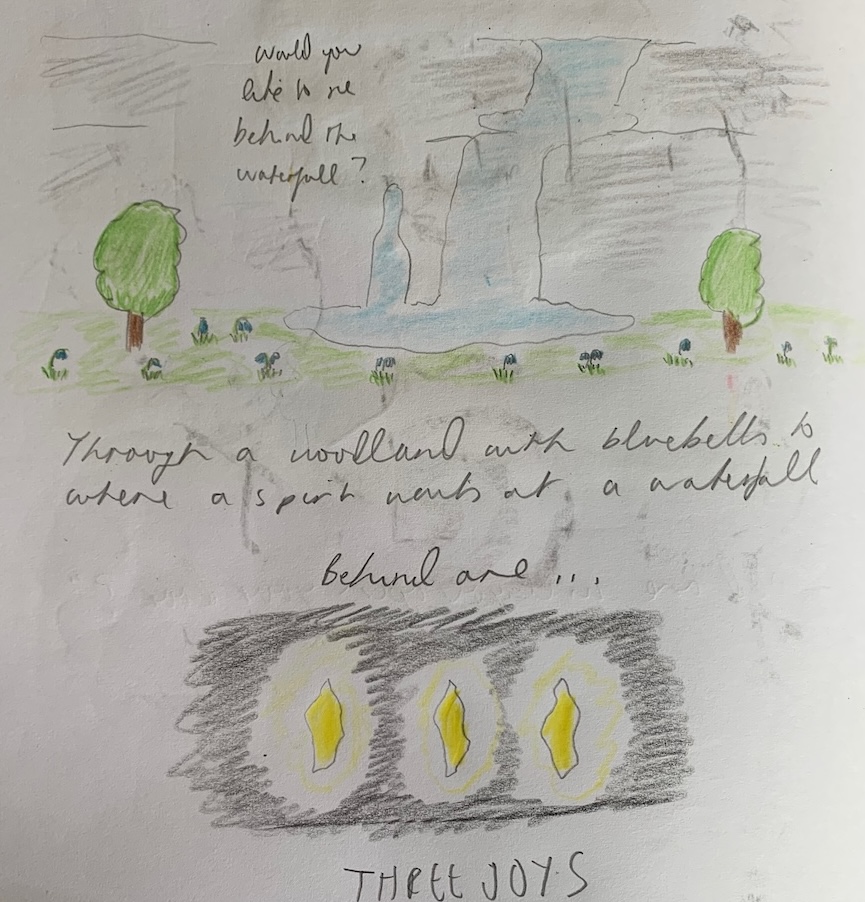 would you
like to see
behind the
waterfall?
Through a woodland with bluebells to
where a spirit waits at a waterfall
Behind are ...
THREE JOYS